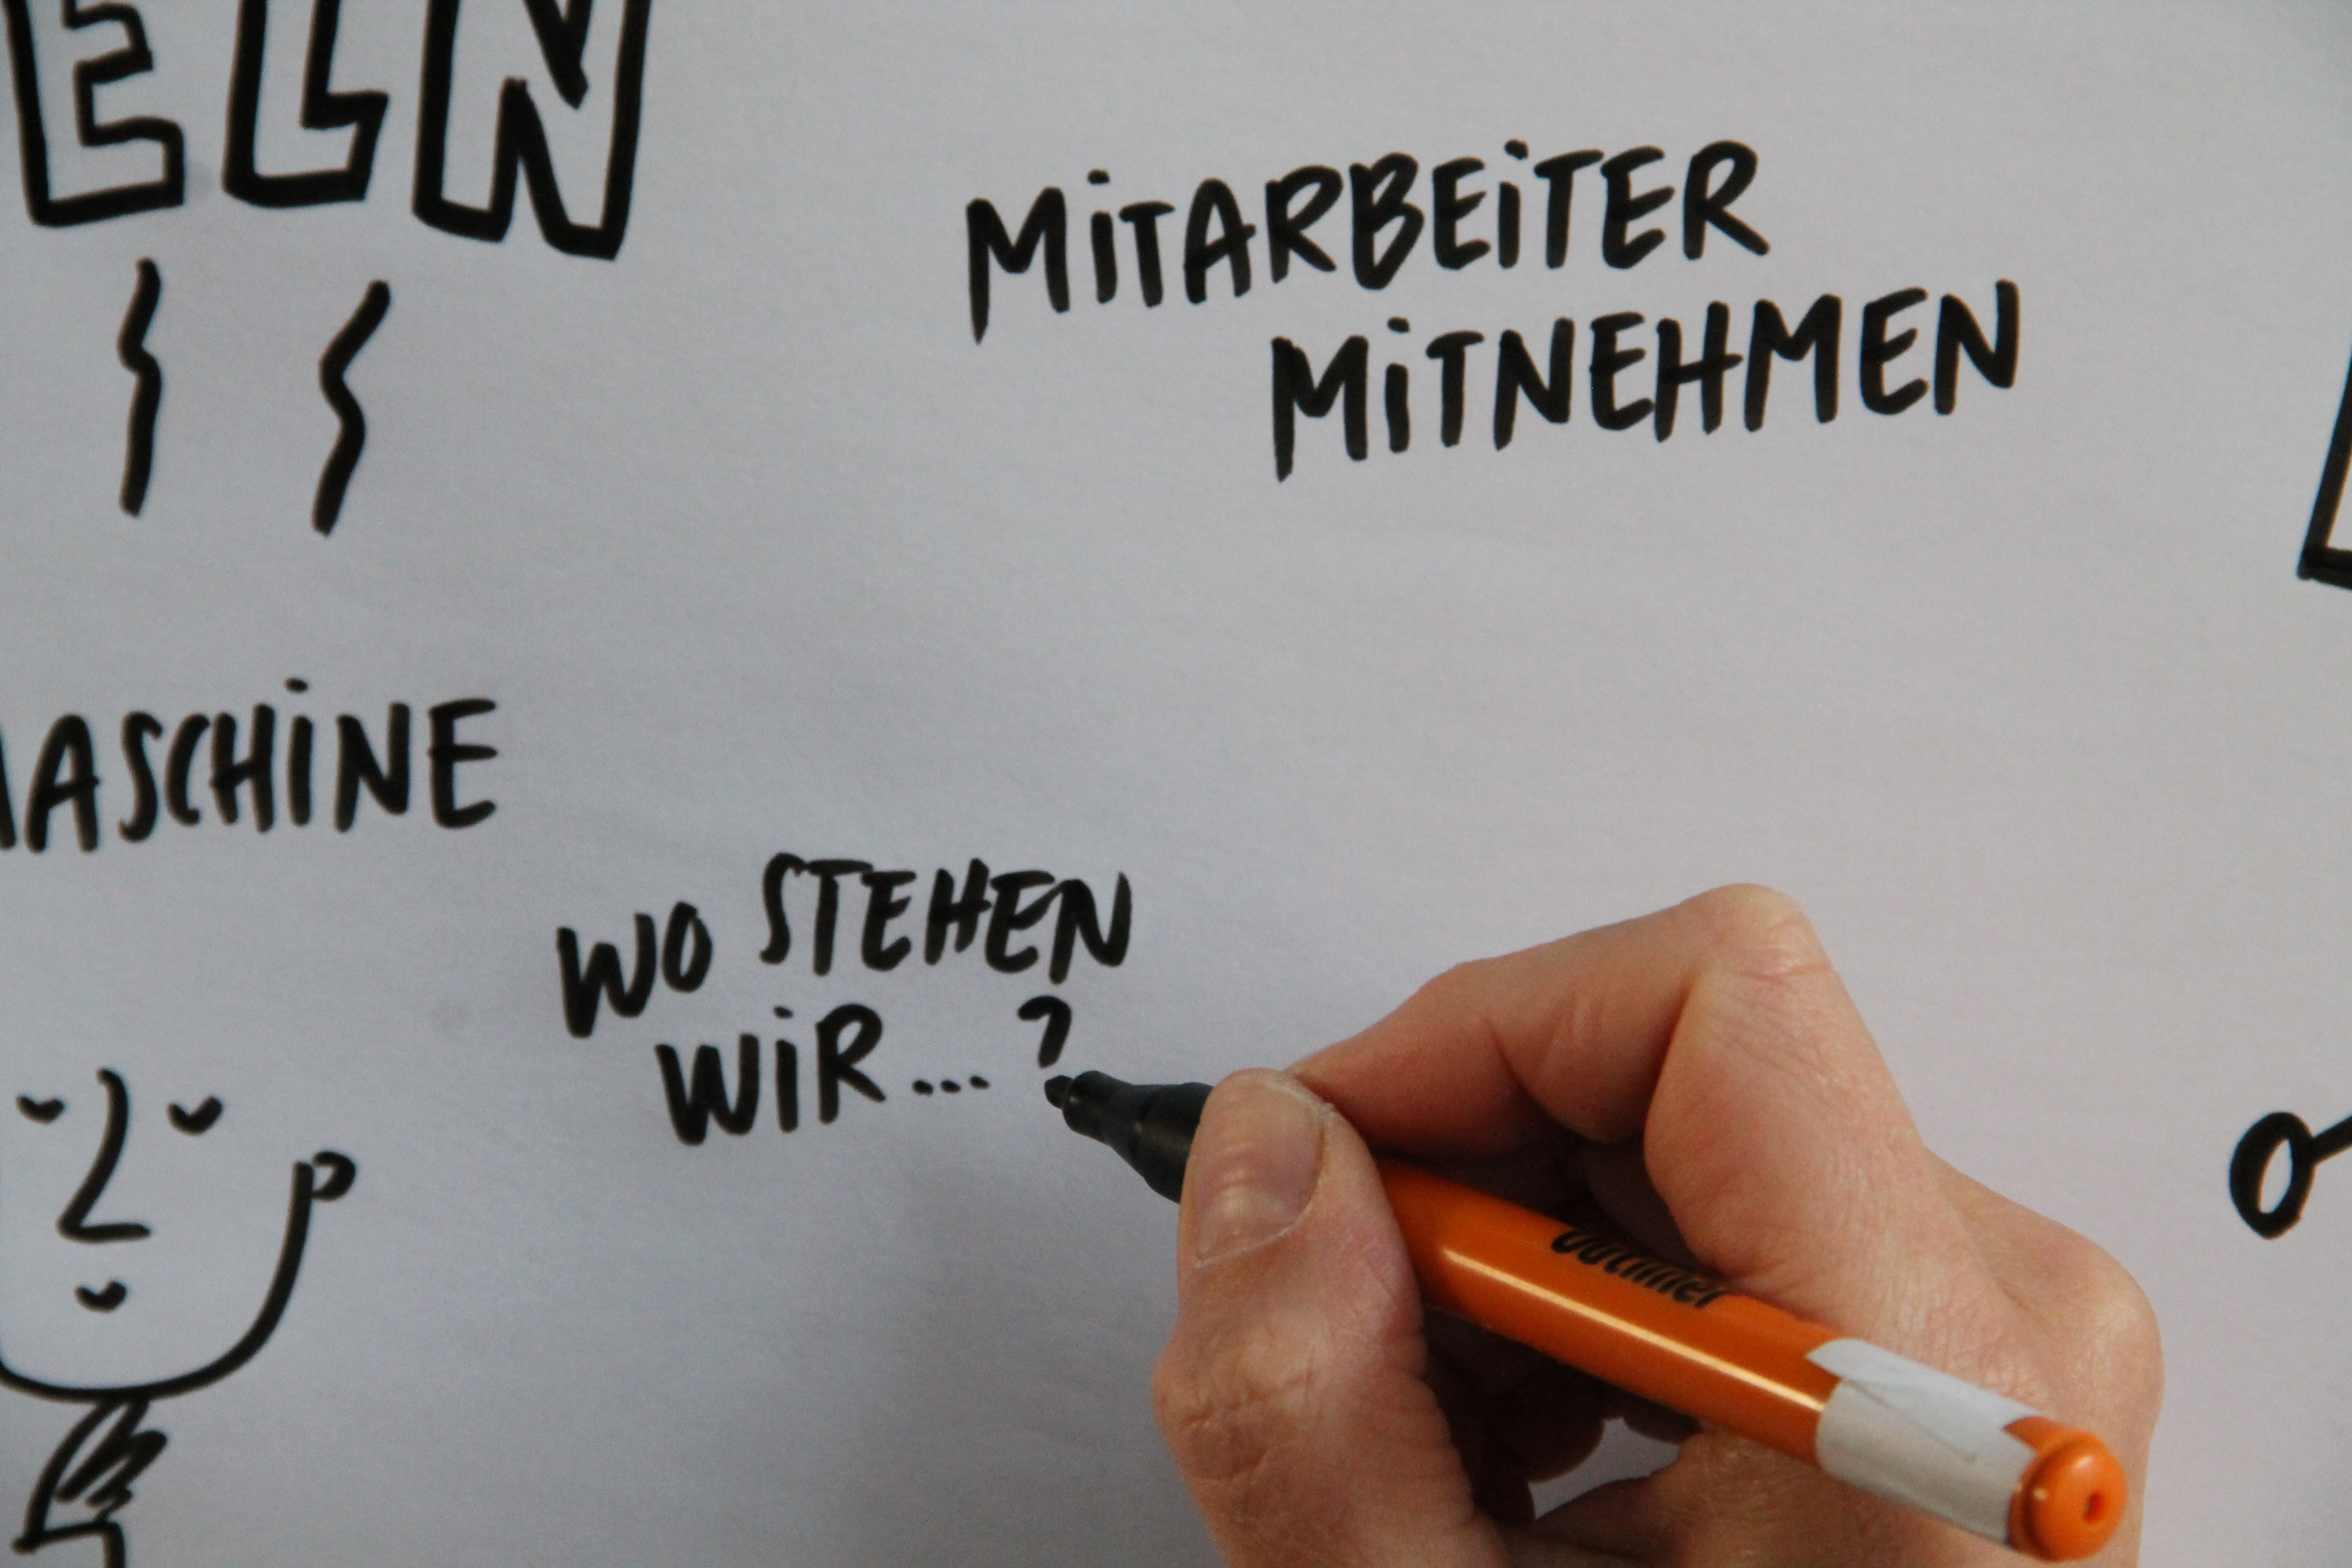 ELN
MiTARBEiTER
MiTNEHMEN
MASCHiNE
WO STEHEN
WiR...?
outliner